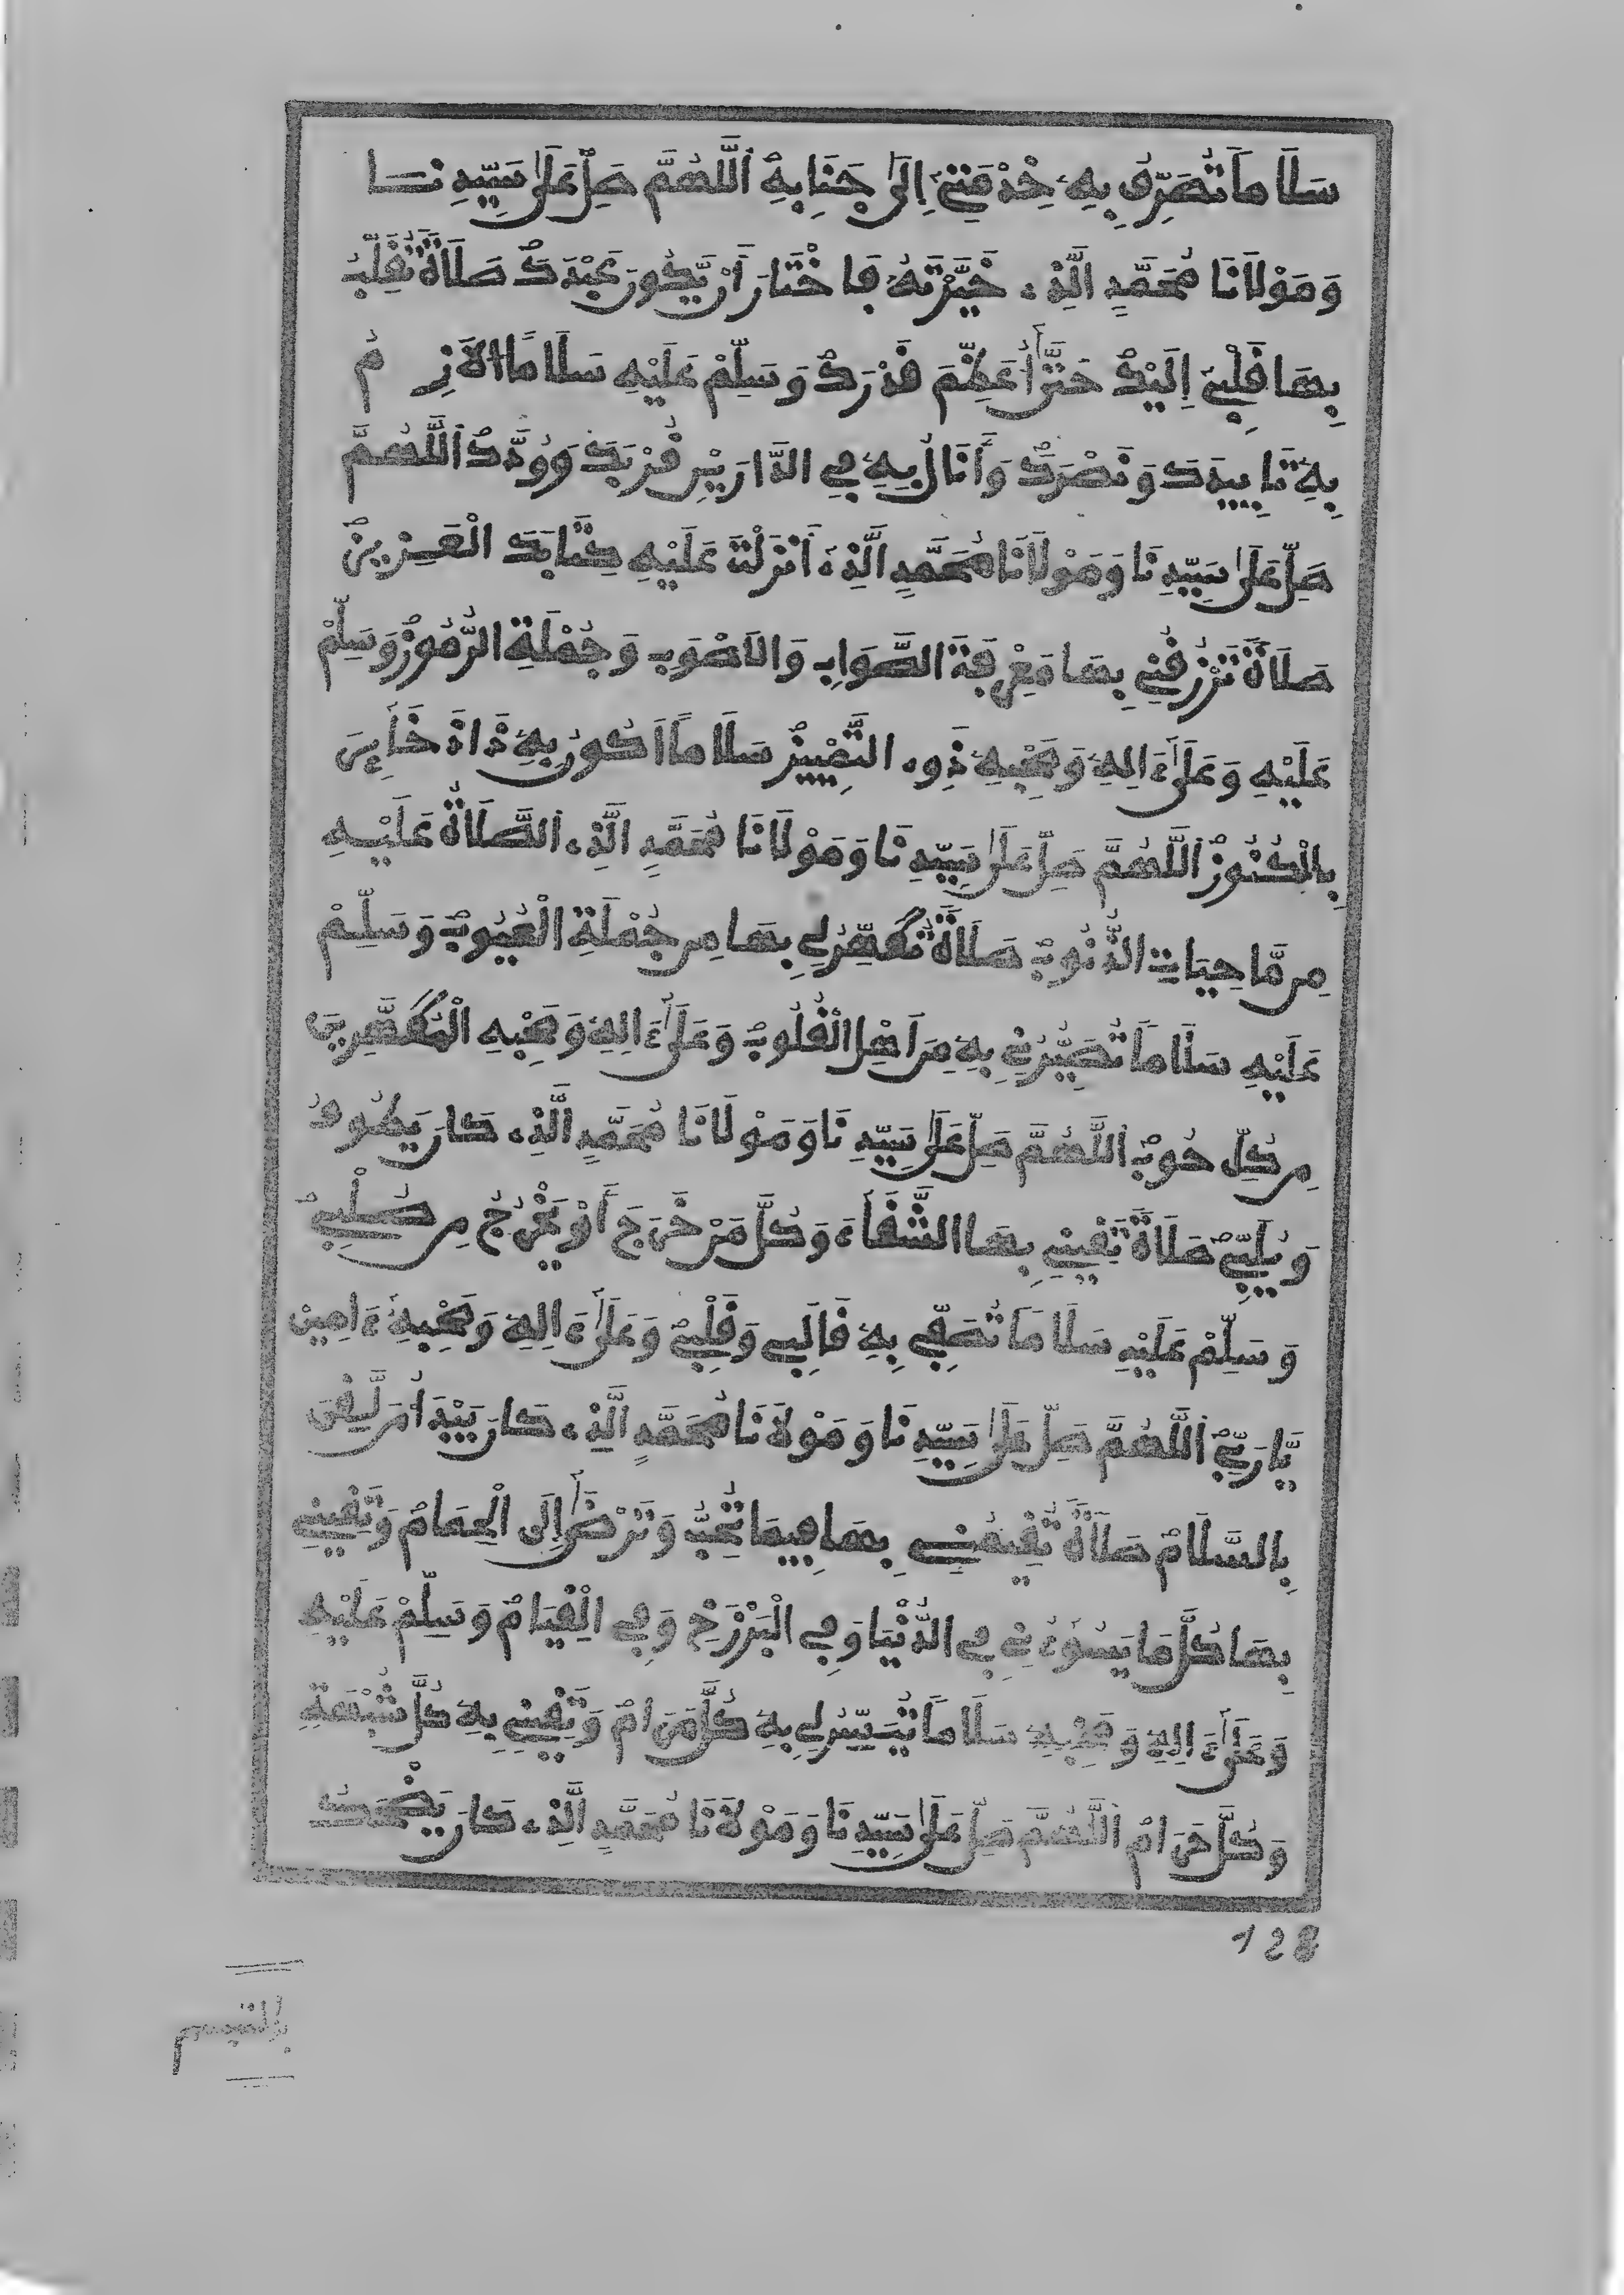 سَلَامًا تُصَرِّفُ بِهِ خِدْمَتِي إِلَىٰ جَنَابِهِ اَللَّهُمَّ صَلِّ عَلَىٰ سَيِّدِنَا
وَمَوْلَانَا مُحَمَّدٍ الَّذِي خَيَّرْتَهُ فَاخْتَارَ أَن يَّكُونَ عَبْدَكَ صَلَاةً تُقَلِّبُ
بِهَا قَلْبِي إِلَيْكَ حَتَّىٰ أُعَظِّمَ قَدْرَكَ وَسَلِّمْ عَلَيْهِ سَلَامًا الَازِمُ
بِهِ تَايِيدَكَ وَنَصْرَكَ وَأَنَالُ بِهِ فِي الدَّارَيْنِ قُرْبَكَ وَوُدَّكَ اَللَّهُمَّ
صَلِّ عَلَىٰ سَيِّدِنَا وَمَوْلَانَا مُحَمَّدٍ الَّذِي أَنْزَلْتَ عَلَيْهِ كِتَابَكَ الْعَزِيزْ
صَلَاةً تَرْزُقُنِي بِهَا مَعْرِفَةَ الصَّوَابِ وَالَاصْوَبِ وَجُمْلَةِ الرُّمُوزْ وَسَلِّمْ
عَلَيْهِ وَعَلَىٰ ءَالِهِ وَصَحْبِهِ ذَوِي التَّمْيِيزْ سَلَامًا اَكُونُ بِهِ ذَا
بِالْكُنُوزْ اَللَّهُمَّ صَلِّ عَلَىٰ سَيِّدِنَا وَمَوْلَانَا مُحَمَّدٍ الَّذِي الصَّلَاةُ عَلَيْهِ
مِن مَّاحِيَاتِ الذُّنُوبْ صَلَاةً تُطَهِّرُ لِي بِهَا مِن جُمْلَةِ الْعُيُوبْ وَسَلِّمْ
عَلَيْهِ سَلَامًا تُصَيِّرُنِي بِهِ مِنَ اَهْلِ الْقُلُوبْ وَعَلَىٰ ءَالِهِ وَصَحْبِهِ الْمُطَهَّرِينَ
مِن كُلِّ حُوبْ اَللَّهُمَّ صَلِّ عَلَىٰ سَيِّدِنَا وَمَوْلَانَا مُحَمَّدٍ الَّذِي كَانَ يَطُوفُ
وَيُلَبِّي صَلَاةً تَقِينِي بِهَا الشَّقَاءَ وَكُلَّ مَنْ خَرَجَ أَوْ يَخْرُجُ مِن صُلْبِي
وَسَلِّمْ عَلَيْهِ سَلَامًا تُصَفِّي بِهِ قَالَبِي وَقَلْبِي وَعَلَىٰ ءَالِهِ وَصَحْبِهِ ءَامِينْ
يَّا رَبِّ اَللَّهُمَّ صَلِّ عَلَىٰ سَيِّدِنَا وَمَوْلَانَا مُحَمَّدٍ الَّذِي كَانَ يَبْدَأُ مَن لَّقِيَ
بِالسَّلَامْ صَلَاةً تُقِيمُنِي بِهَا فِيمَا تُحِبُّ وَتَرْضَىٰ إِلَى الْحِمَامْ وَتَقِينِي
بِهَا كُلَّ مَا يَسُوءُنِي فِي الدُّنْيَا وَفِي الْبَرْزَخِ وَفِي الْقِيَامْ وَسَلِّمْ عَلَيْهِ
وَعَلَىٰ ءَالِهِ وَصَحْبِهِ سَلَامًا تُيَسِّرُ لِي بِهِ كُلَّ مَرَامْ وَتَقِينِي بِهِ كُلَّ شُبْهَةٍ
وَكُلَّ حَرَامْ اَللَّهُمَّ صَلِّ عَلَىٰ سَيِّدِنَا وَمَوْلَانَا مُحَمَّدٍ الَّذِي كَانَ يَضْحَكُ
128